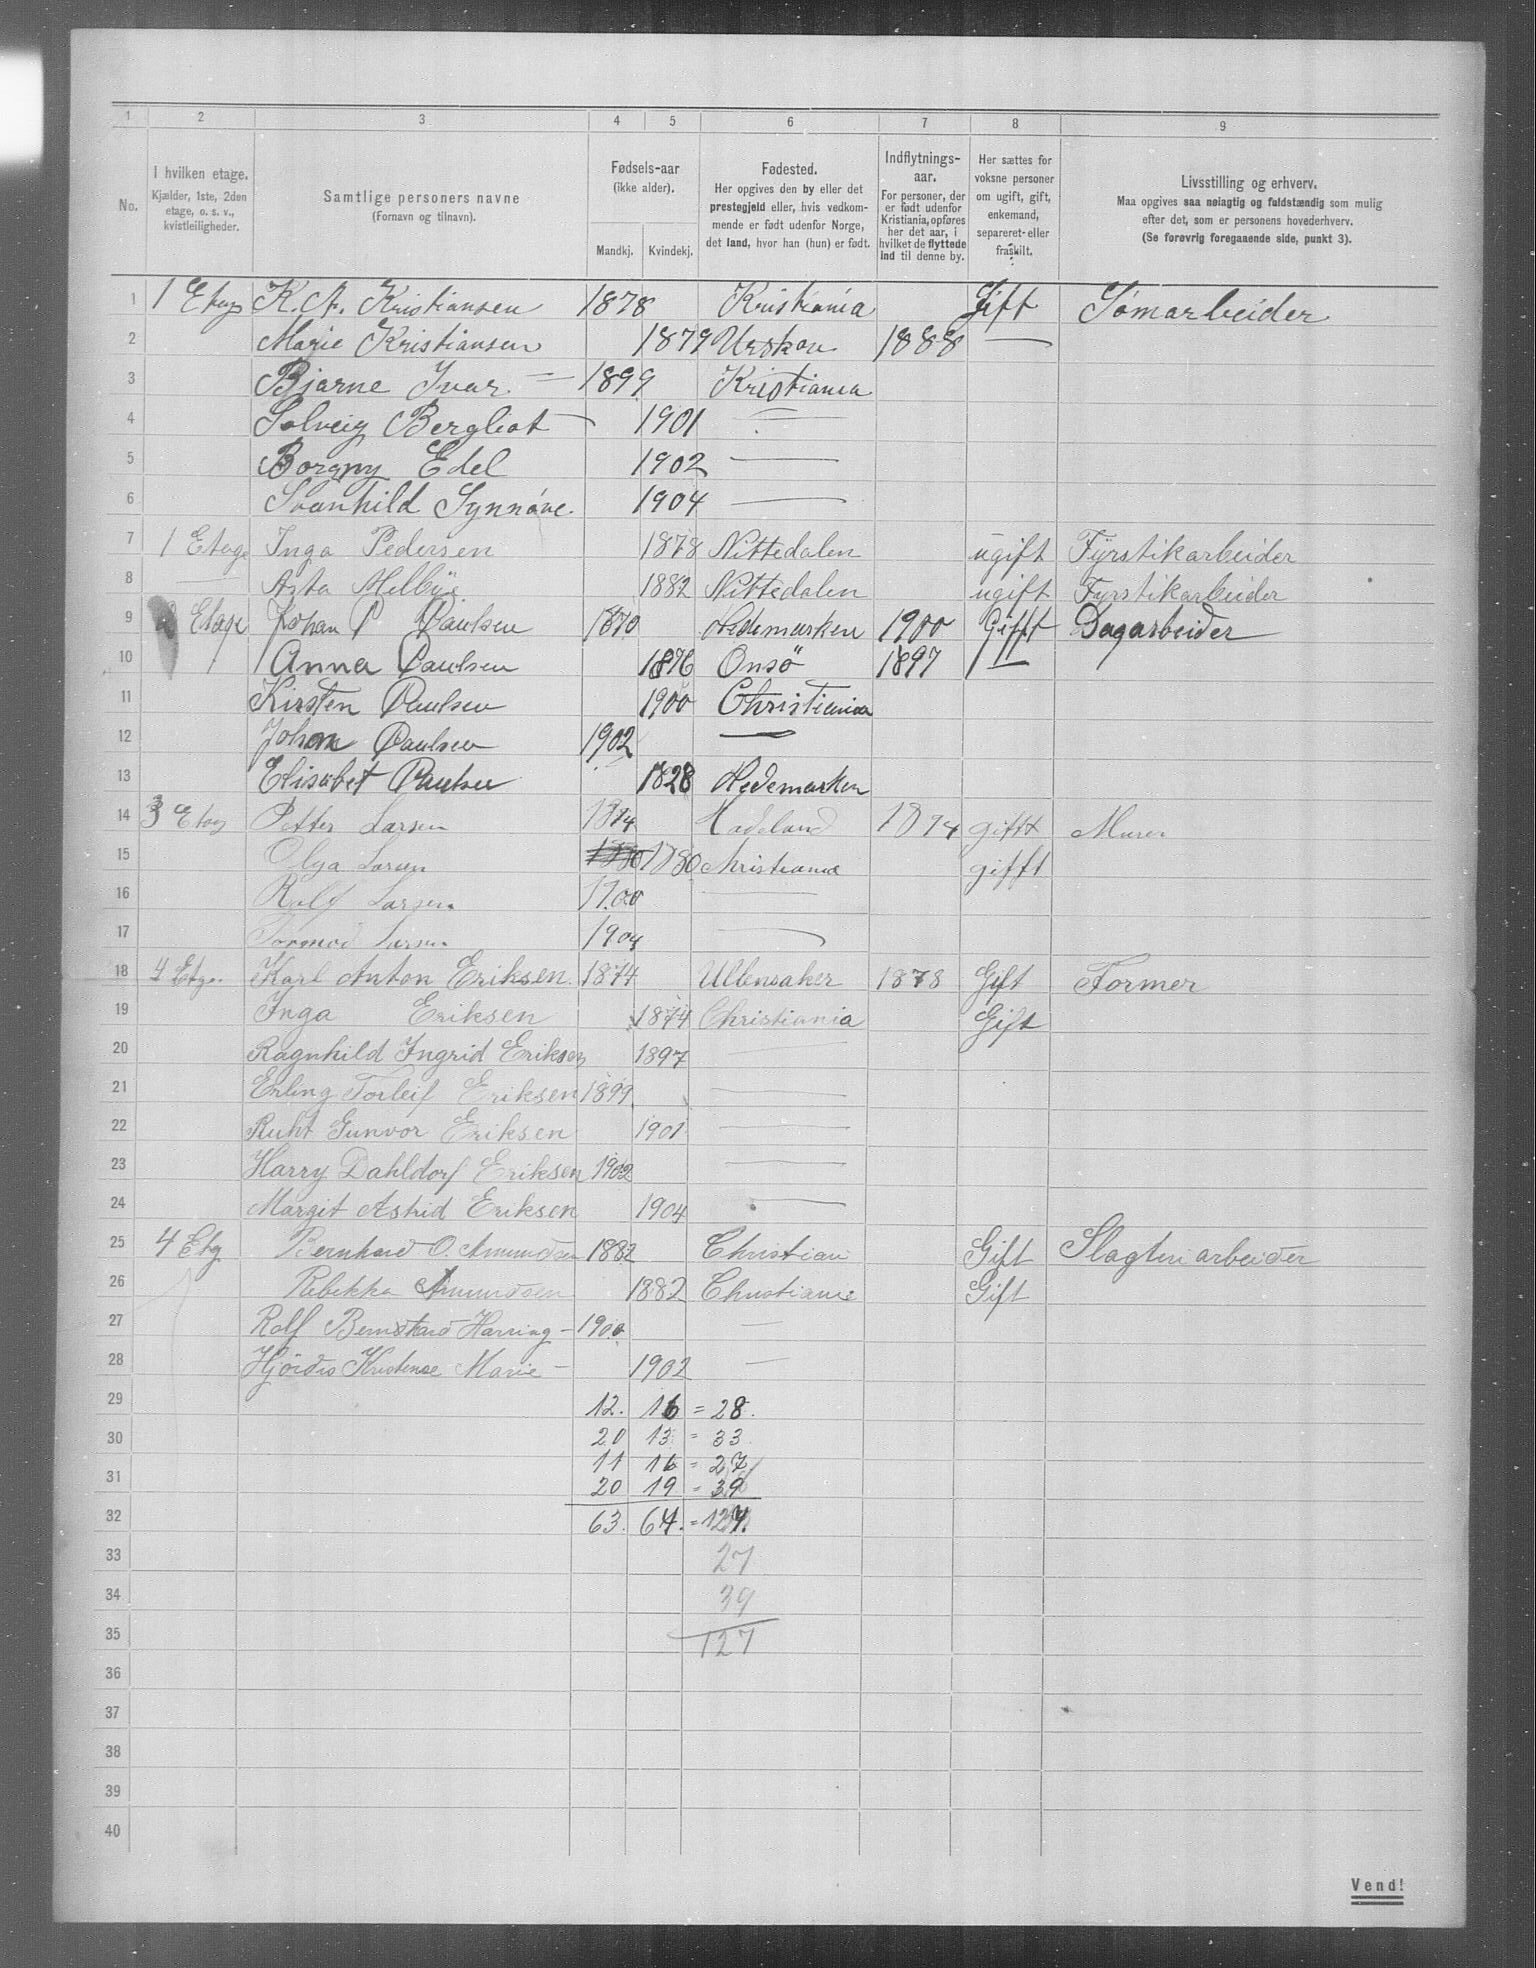 1 2 3 4 5 6 7 8 9
No.
I hvilken etage.
Kjælder, 1ste, 2den
etage, o. s. v.,
kvistleiligheder.
Samtlige personers navne
(Fornavn og tilnavn).
Fødsels-aar
(ikke alder).
Mandkj. Kvindekj.
Fødested.
Her opgives den by eller det
prestegjeld eller, hvis vedkom-
mende er født udenfor Norge,
det land, hvor han (hun) er født.
Indflytnings-
aar.
For personer, der
er født udenfor
Kristiania, opføres
her det aar, i
hvilket de flyttede
ind til denne by.
Her sættes for
voksne personer
om ugift, gift,
enkemand,
separeret eller
fraskilt.
Livsstilling og erhverv.
Maa opgives saa nøiagtig og fuldstændig som mulig
efter det, som er personens hovederhverv.
(Se forøvrig foregaaende side, punkt 3).
1 1 Etage K. A. Kristiansen 1878 Kristiania Gift Sømarbeider
2 Marie Kristiansen 1879 Urskou 1888 —
3 Bjarne Ivar — 1899 Kristiania
4 Solveig Bergliot — 1901 —
5 Borgny Edel 1902 —
6 Svanhild Synnøve 1904 —
7 1 Etage Inga Pedersen 1878 Nittedalen ugift Fyrstikarbeider
8 — Asta Melbye 1882 Nittedalen ugift Fyrstikarbeider
9 Etage Johan P Paulsen 1870 Hedemarken 1900 Gifft Dagarbeider
10 Anna Paulsen 1876 Onsö 1897 —
11 Kirsten Paulsen 1900 Christiania
12 Johan Paulsen 1902 —
13 Elisabet Paulsen 1828 Hedemarken
14 3 Etag Petter Larsen 1874 Hadeland 1894 gifft Murer
15 Olga Larsen 1880 Christiania gifft
16 Rolf Larsen 1900 —
17 Tormod Larsen 1904 —
18 4 Etge. Karl Anton Eriksen 1874 Ullensaker 1878 Gift Former
19 Inga Eriksen 1874 Christiania Gift
20 Ragnhild Ingrid Eriksen 1897 —
21 Erling Torleif Eriksen 1899 —
22 Ruht Gunvor Eriksen 1901 —
23 Harry Dahldorf Eriksen 1902 —
24 Margit Astrid Eriksen 1904 —
25 4 Etg Bernhard O. Amundsen 1882 Christian Gift Slagteriarbeider
26 Rebekka Amundsen 1882 Christiania Gift
27 Rolf Bernhard Harring — 1900 —
28 Hjördis Kristense Marie — 1902 —
29 12. 16 = 28.
30 20 13 = 33
11 16 = 27
31 20 19 = 39
32 63. 64. = 127.
33 27
34 39
35 127
36
37
38
39
40
Vend!